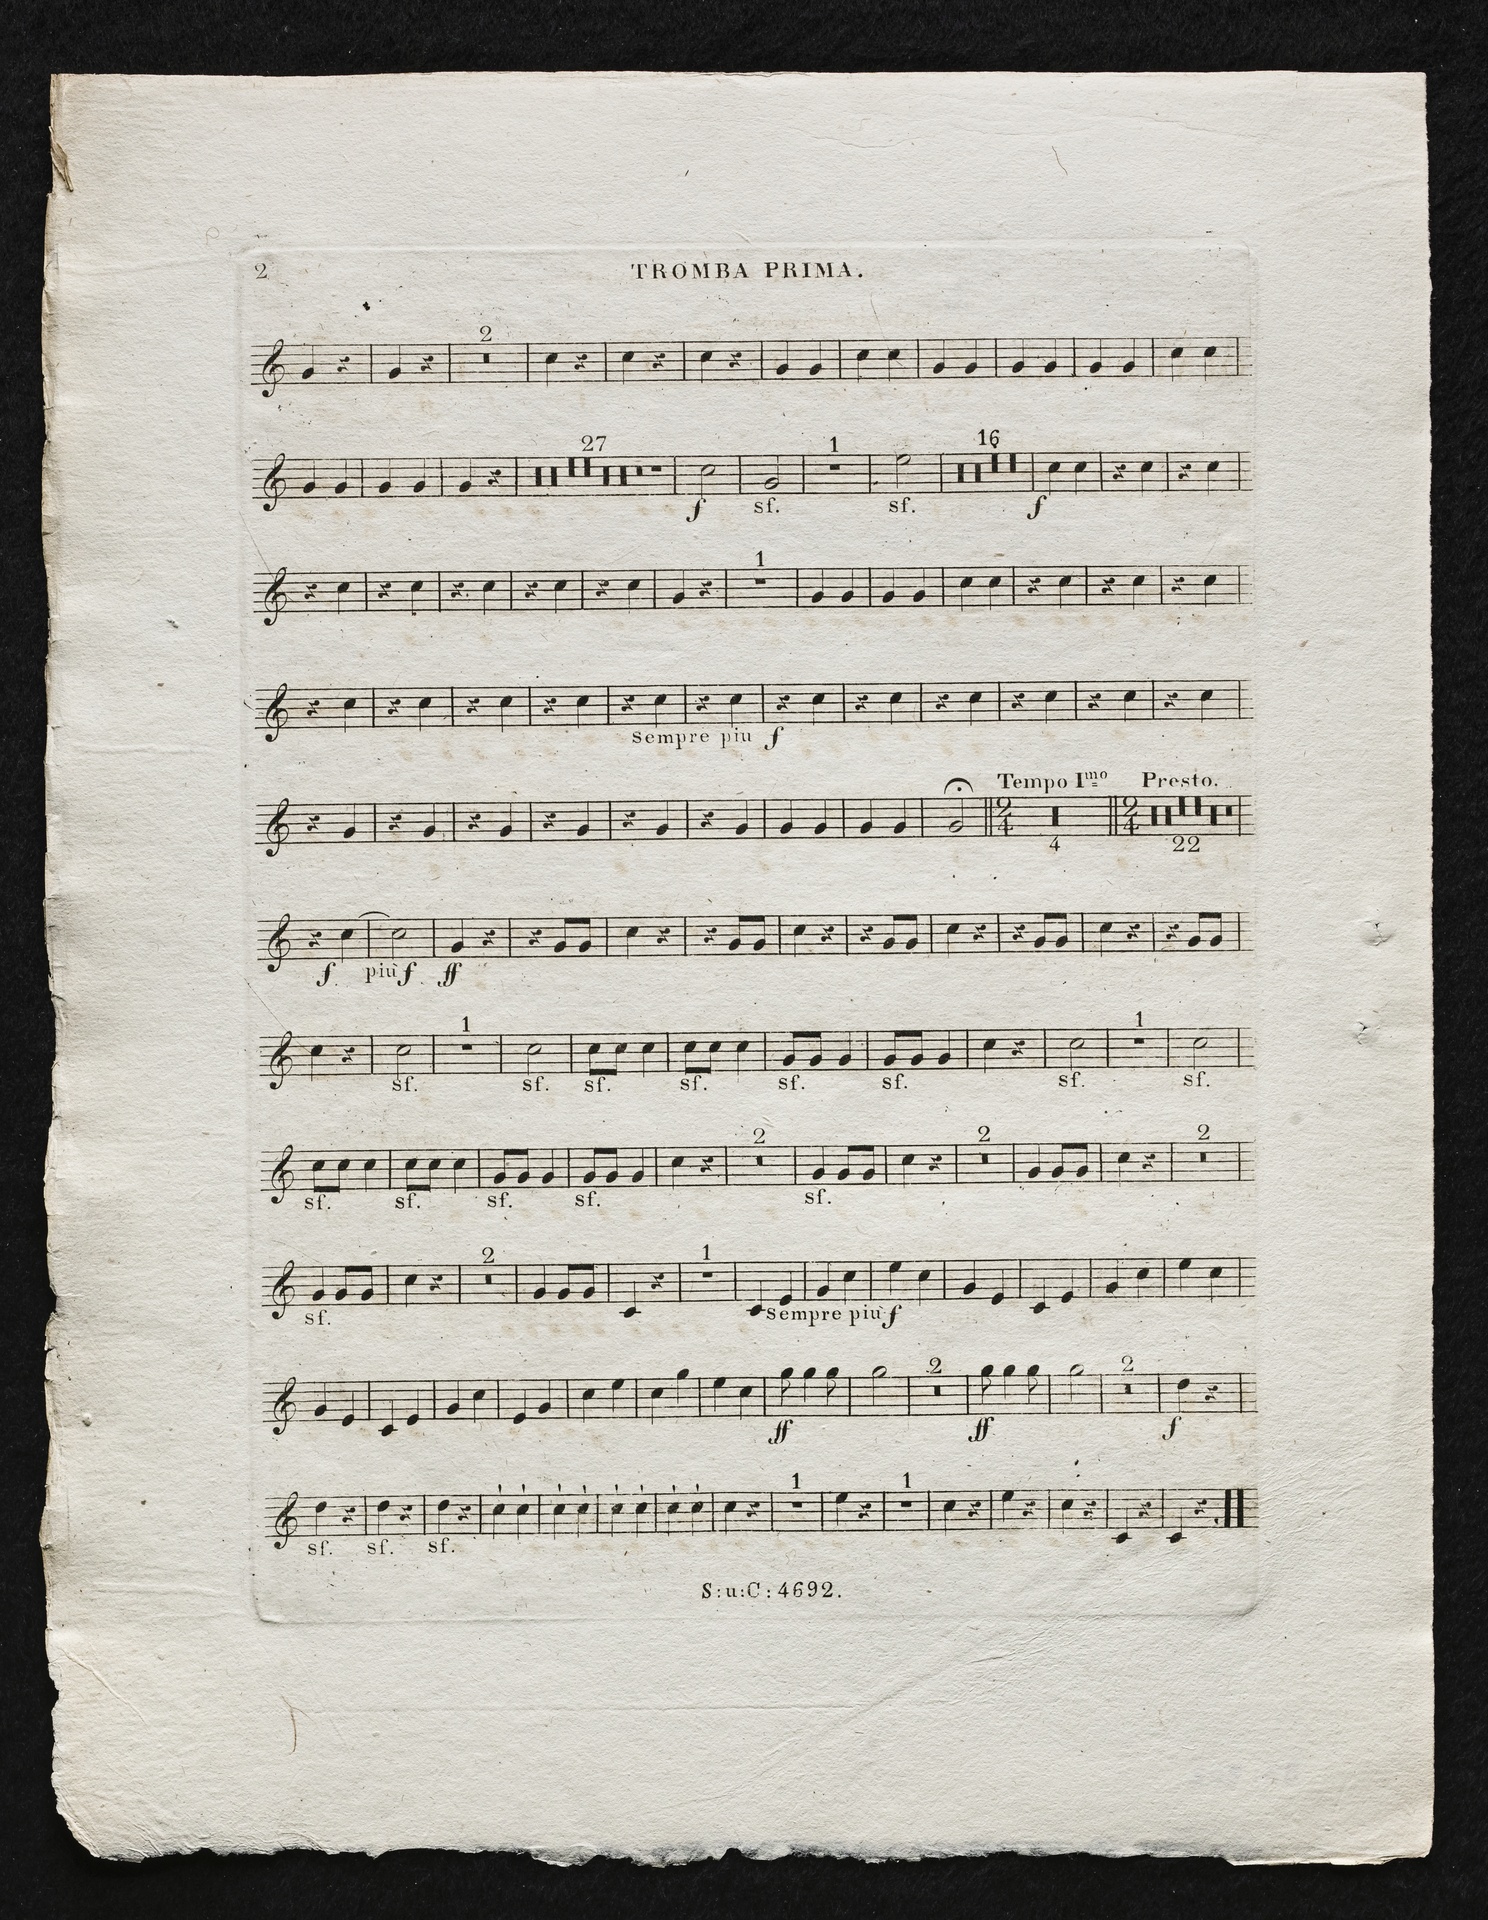 2
TROMBA PRIMA.
2
27
1
16
f
sf.
sf.
f
1
Sempre piu f
Tempo Imo
Presto.
2
4
2
4
4
22
f.
più f.
ff
1
1
sf.
sf.
sf.
sf.
sf.
sf.
sf.
sf.
2
2
2
sf.
sf.
sf.
sf.
sf.
2
1
sf.
Sempre più f
2
2
ff
ff
f
1
1
sf.
sf.
sf.
S:u:C:4692.